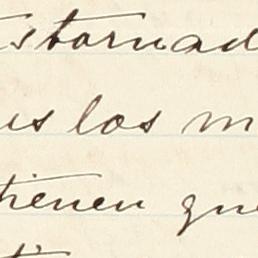 stornad
us los m
tienen que